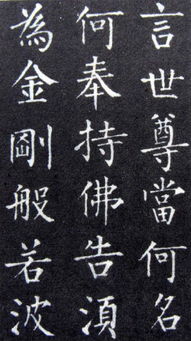 言世尊當何名
何奉持佛告湏
為金剛般若波